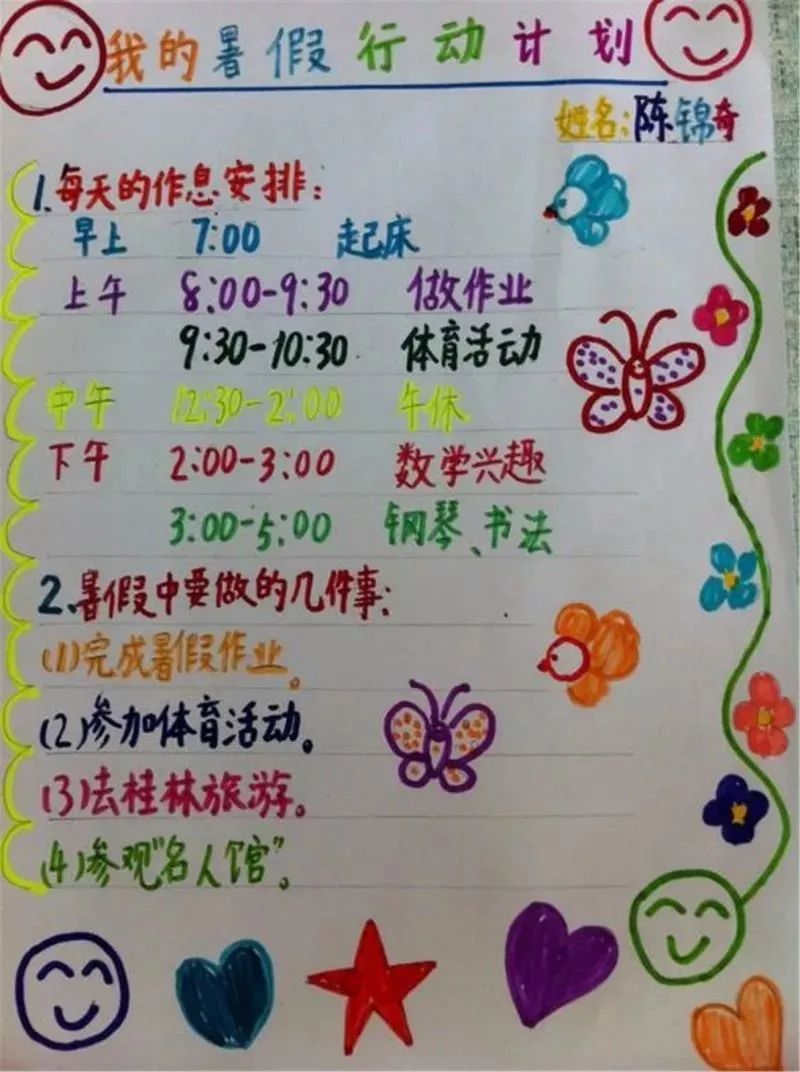 我的暑假行动计划
姓名:陈锦奇
1.每天的作息安排:
早上 7:00 起床
上午 8:00-9:30 做作业
9:30-10:30 体育活动
中午 12:30-2:00 午休
下午 2:00-3:00 数学兴趣
3:00-5:00 钢琴、书法
2.暑假中要做的几件事:
(1)完成暑假作业。
(2)参加体育活动。
(3)去桂林旅游。
(4)参观"名人馆"。